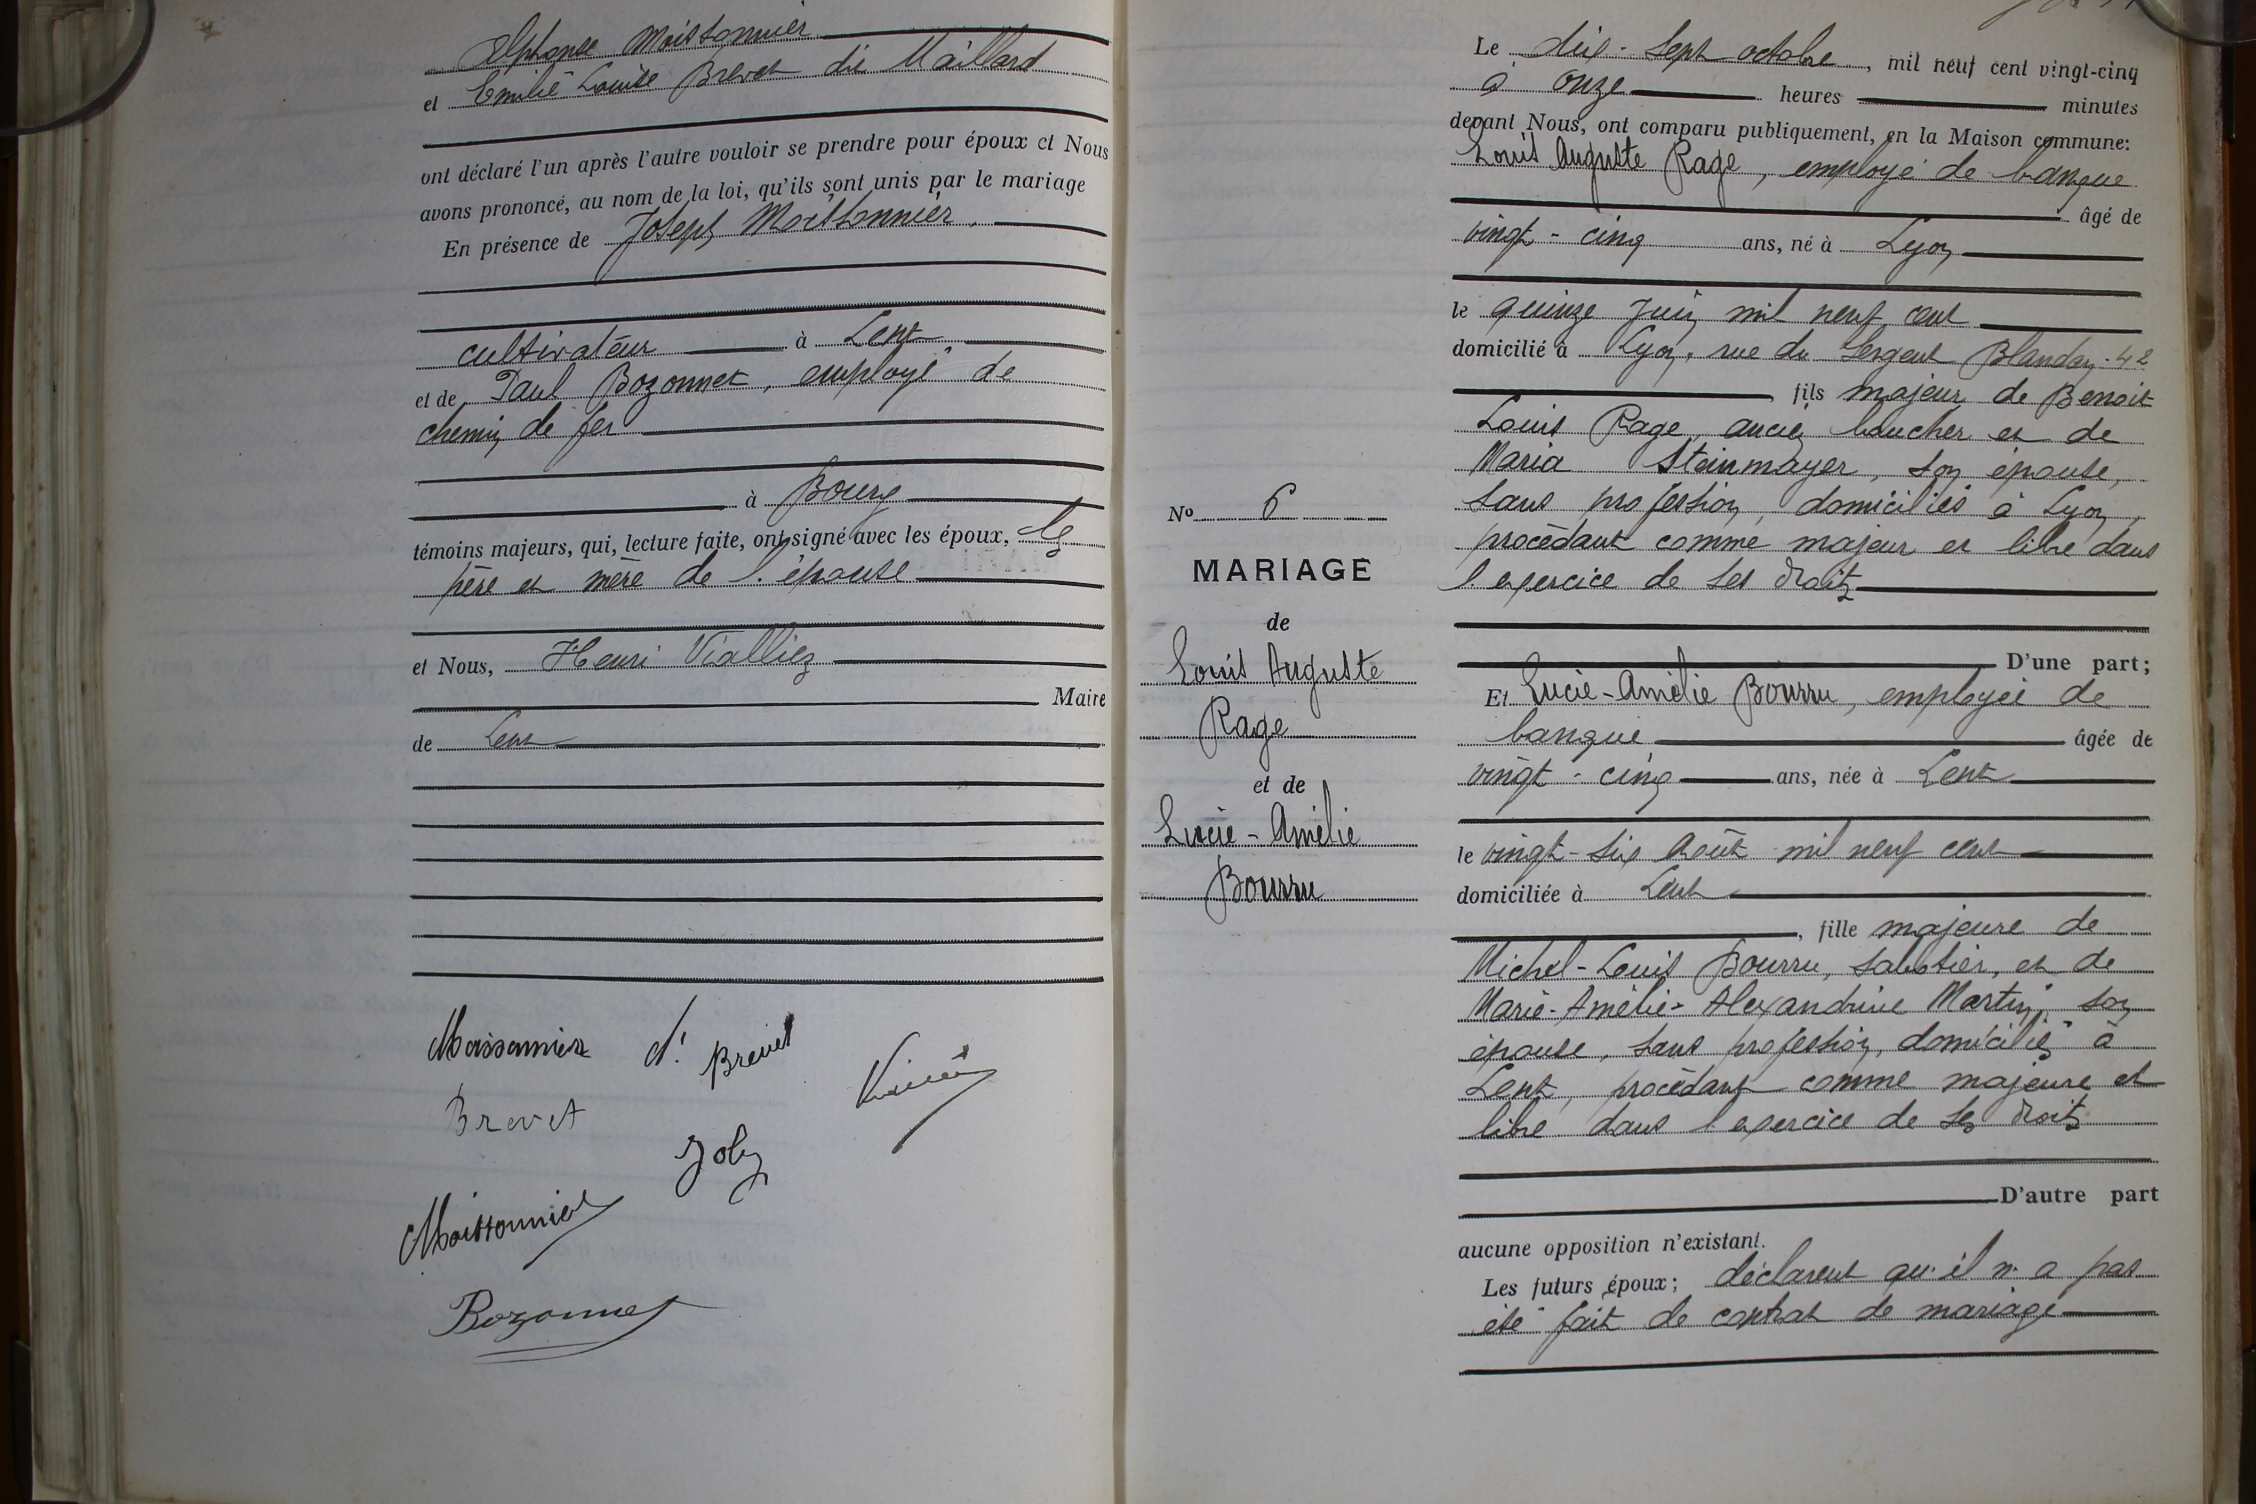 Alphonse Moissonnier
et Emilie Louise Brevet dit Maillard
ont déclaré l'un après l'autre vouloir se prendre pour époux et Nous
avons prononcé, au nom de la loi, qu'ils sont unis par le mariage
En présence de Joseph Moissonnier,
cultivateur à Lent
et de Paul Bozonnet, employé de
chemin de fer
à Bourg
témoins majeurs, qui, lecture faite, ont signé avec les époux, les
père et mère de l'épouse
et Nous, Henri Viallier
Maire
de Lent
Moissonnier d. Brevet
Brevet
Joly
Moissonnier
Bozonnet
No 6
MARIAGE
de
Louis Auguste
Rage
et de
Lucie-Amélie
Bourru
Le dix-sept octobre, mil neuf cent vingt-cinq
à onze heures minutes
devant Nous, ont comparu publiquement, en la Maison commune:
Louis Auguste Rage, employé de banque
âgé de
vingt-cinq ans, né à Lyon
le quinze Juin mil neuf cent
domicilié à Lyon, rue du Sergent Blandan. 42
fils majeur de Benoit
Louis Rage, ancien boucher et de
Maria Steinmayer, son épouse,
sans profession, domiciliés à Lyon,
procédant comme majeur et libre dans
l'exercice de ses droits
D'une part;
Et Lucie-Amélie Bourru, employée de
banque âgée de
vingt-cinq ans, née à Lent
le vingt-six Août mil neuf cent
domiciliée à Lent
, fille majeure de
Michel-Louis Bourru, sabotier, et de
Marie-Amélie-Alexandrine Martin, son
épouse, sans profession, domiciliés à
Lent, procédant comme majeure et
libre dans l'exercice de ses droits
D'autre part
aucune opposition n'existant.
Les futurs époux; déclarent qu'il n'a pas
été fait de contrat de mariage